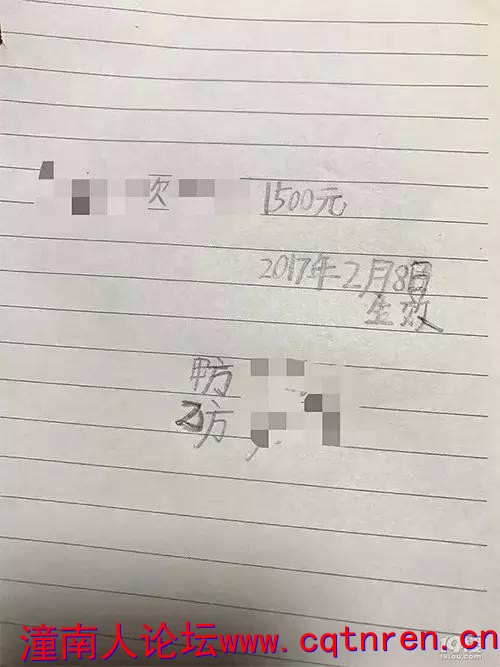 欠 1500元
2017年2月8日
生效
甲方
乙方
潼南人论坛www.cqtnren.cn